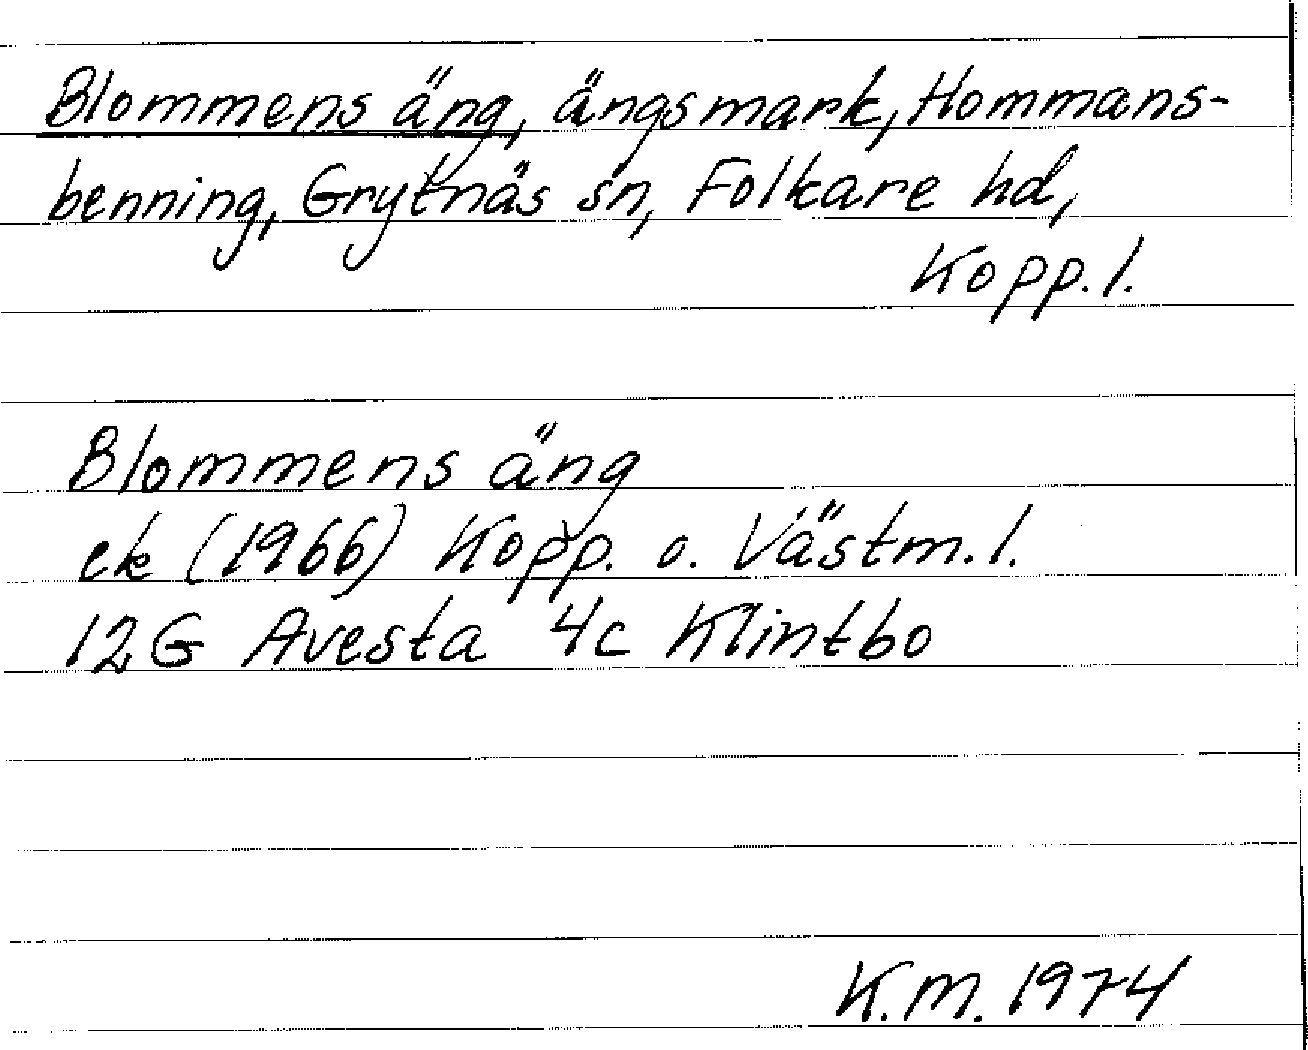 Blommens äng, ängsmark, Hommans-
benning, Grytnäs sn, Folkare hd,
Kopp. l.
Blommens äng
ek (1966) Kopp. o. Västm. l.
12G Avesta 4c Klintbo
K.M. 1974